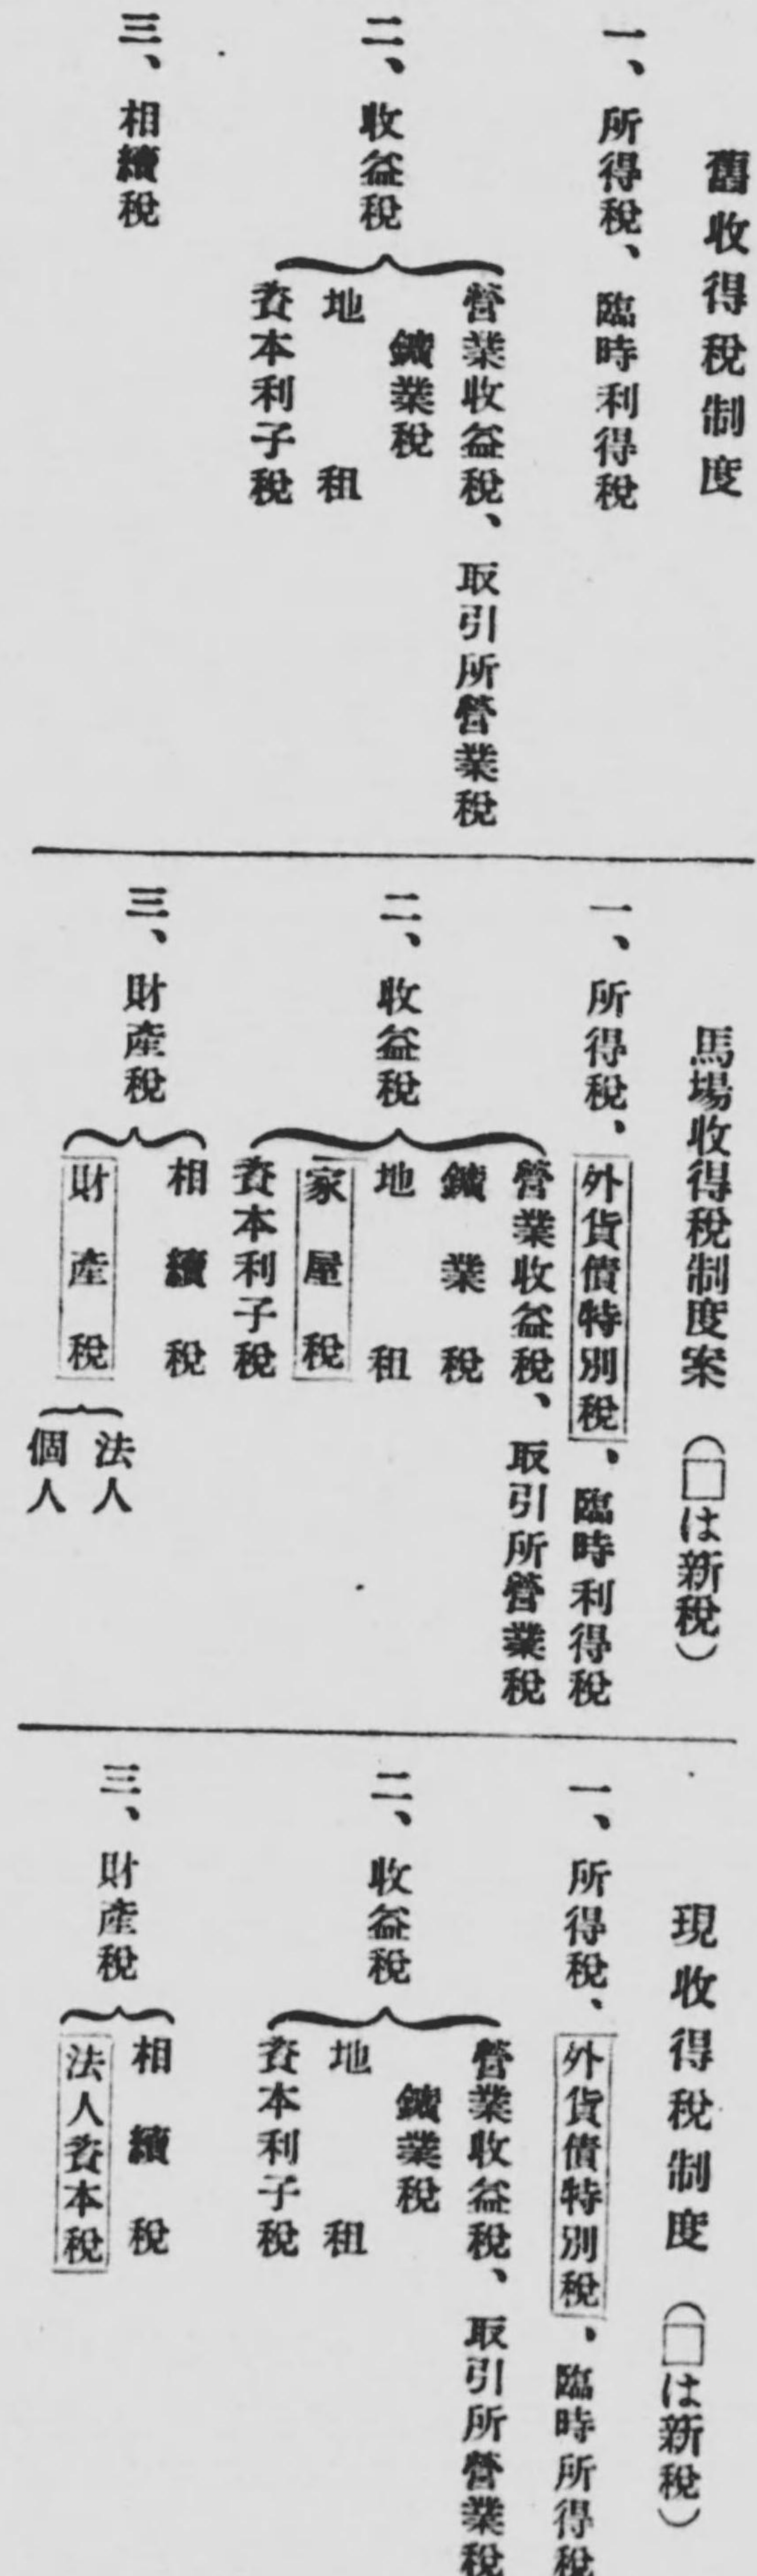 舊收得稅制度
一、所得稅、臨時利得稅
二、收益稅
營業收益稅、取引所營業稅
鑛業稅
地租
資本利子稅
三、相續稅
馬場收得稅制度案（□は新稅）
一、所得稅、外貨債特別稅、臨時利得稅
二、收益稅
營業收益稅、取引所營業稅
鑛業稅
地租
家屋稅
資本利子稅
三、財產稅
相續稅
財產稅
法人
個人
現收得稅制度（□は新稅）
一、所得稅、外貨債特別稅、臨時所得稅
二、收益稅
營業收益稅、取引所營業稅
鑛業稅
地租
資本利子稅
三、財產稅
相續稅
法人資本稅